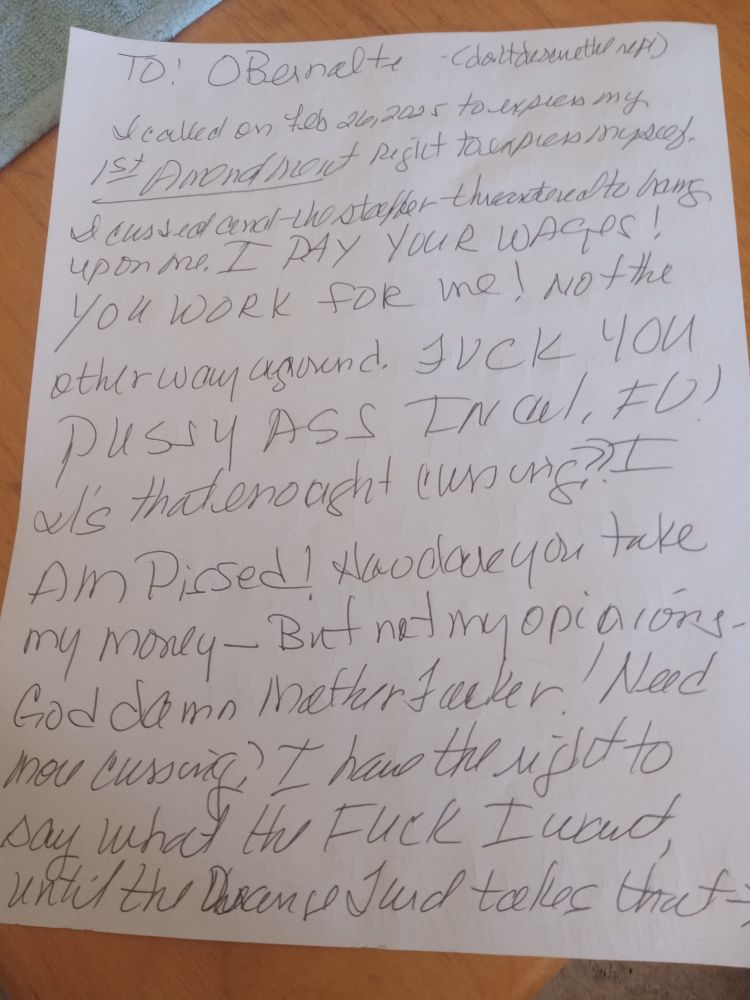 TO: OBernalte - (don't deserve the rest)
I called on Feb 26, 2025 to express my
1st Amendment right to express myself.
I cussed and the staffer threatened to hang
up on me. I PAY YOUR WAGES!
YOU WORK FOR me! Not the
other way around. FUCK YOU
PUSSY ASS INCel, FU!
Is that enought cursing? I
Am Pissed! How dare you take
my money - But not my opinions -
God damn Mother Fucker! Need
more cussing? I have the right to
say what the FUCK I want,
until the Orange Turd takes that →